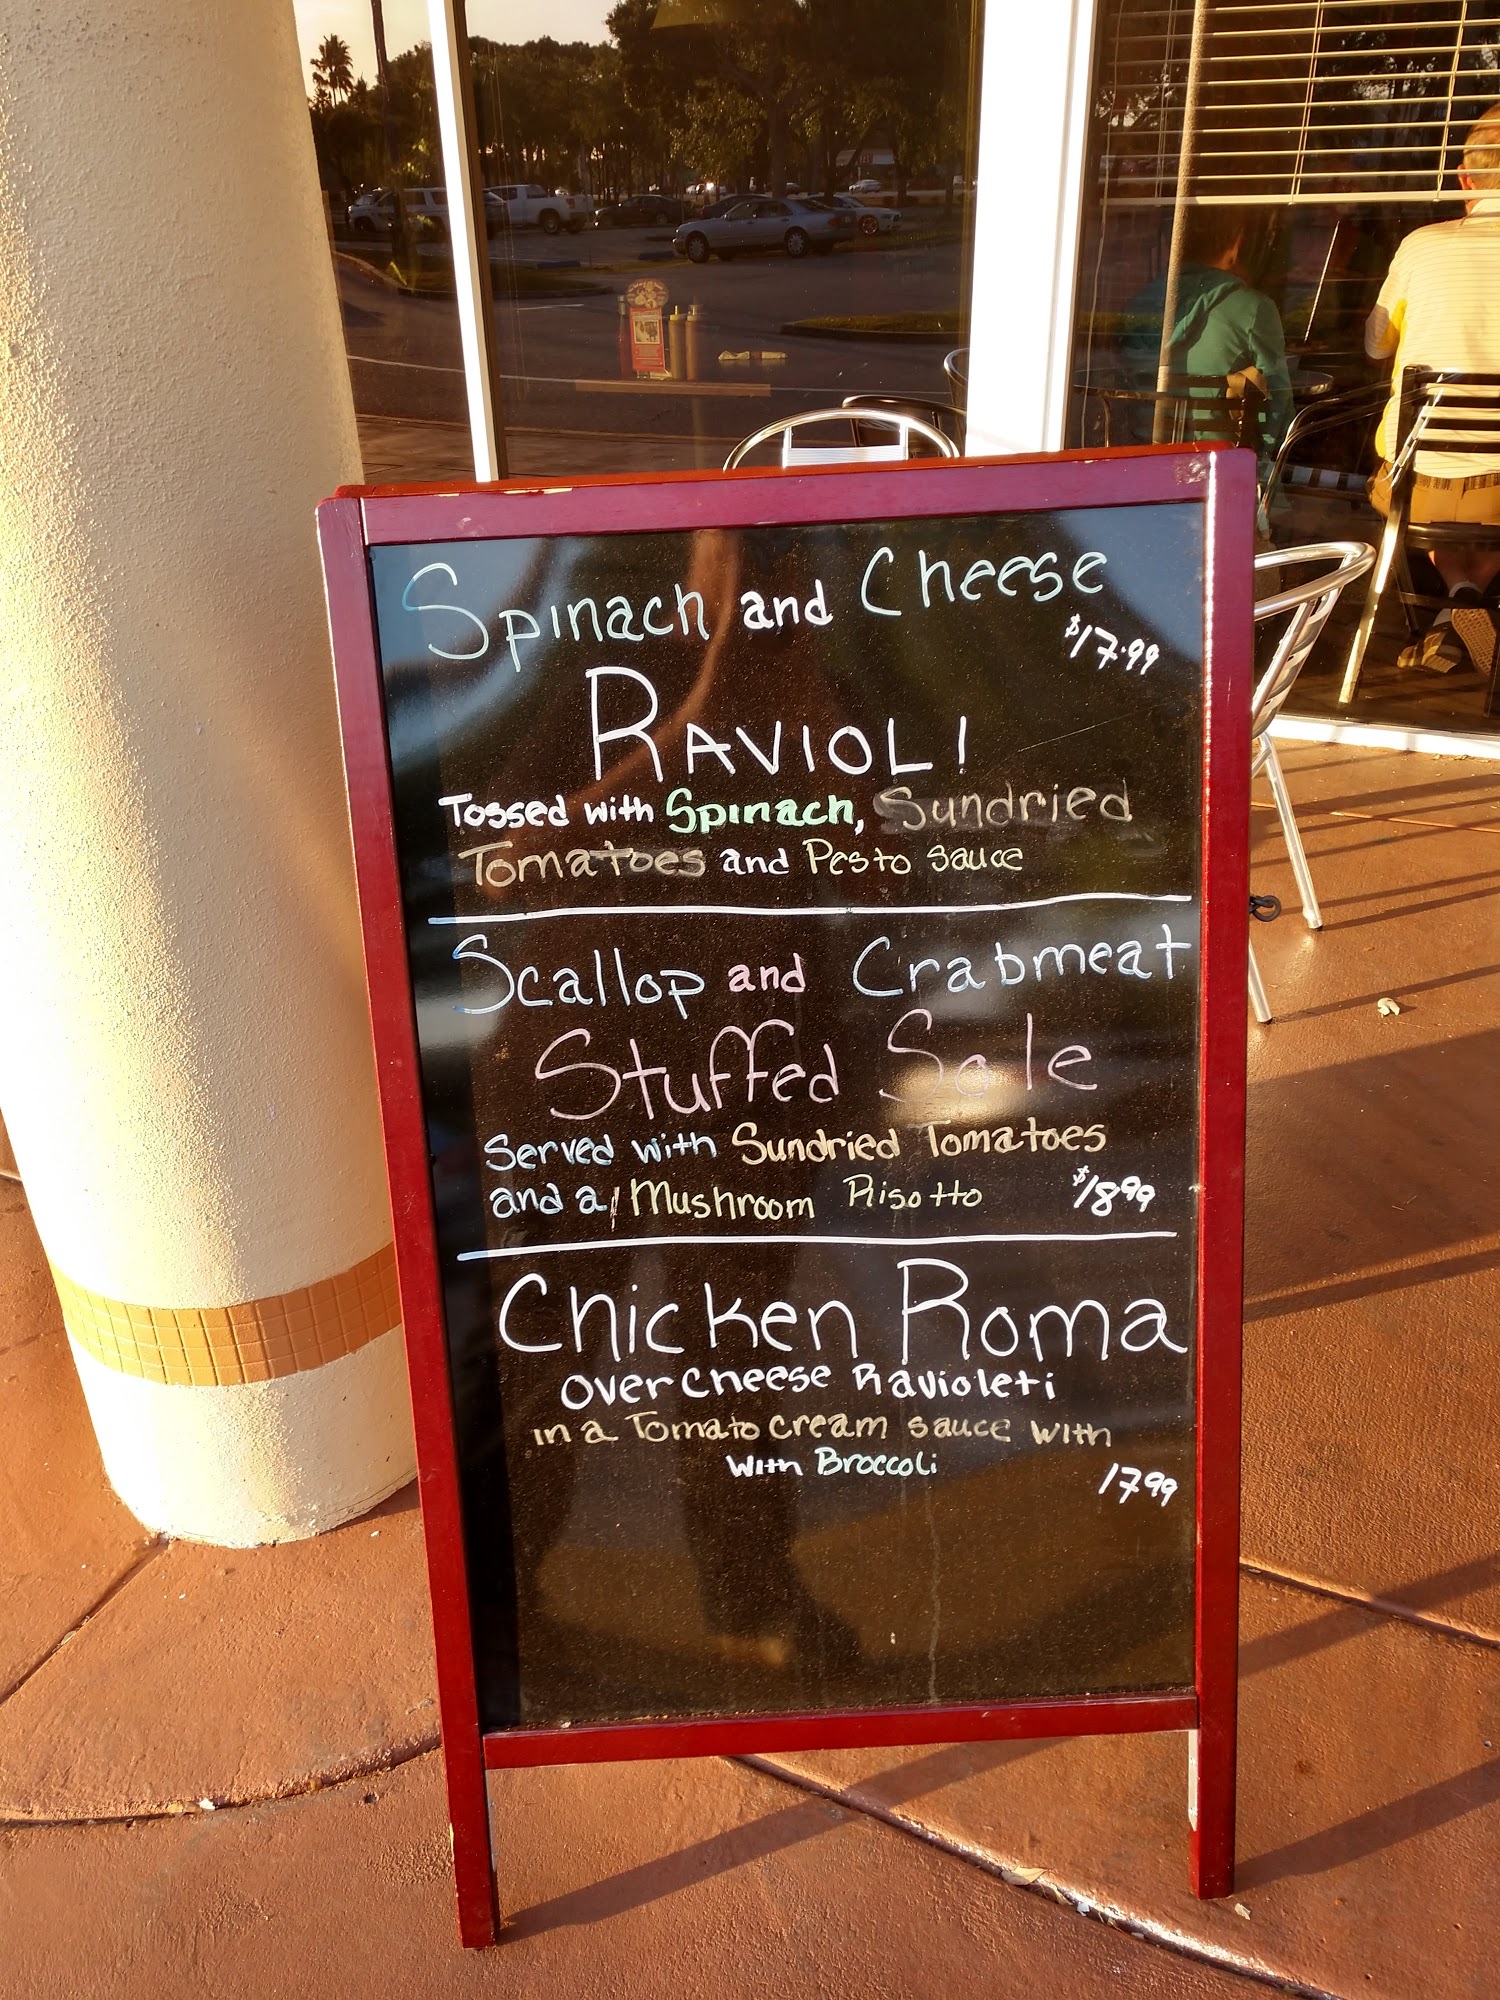 Spinach and Cheese
$17.99
RAVIOLI
Tossed with Spinach, Sundried
Tomatoes and Pesto sauce
Scallop and Crabmeat
Stuffed Sole
Served with Sundried Tomatoes
and a Mushroom Risotto $18.99
Chicken Roma
over cheese Ravioleti
in a Tomato cream sauce with
with Broccoli
17.99